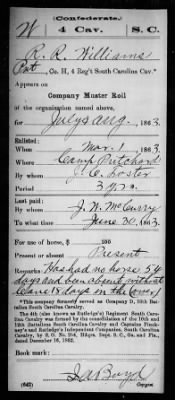 (Confederate.)
W 4 Cav. S. C.
R. R. Williams
Pvt, Co. H, 4 Reg't South Carolina Cav.*
Appears on
Company Muster Roll
of the organization named above,
for July & Aug, 1863.
Enlisted:
When Mar. 1, 1863.
Where Camp Pritchard
By whom J. C. Foster
Period 3 yrs.
Last paid:
By whom J. W. McCurry
To what time June 30, 1863.
For use of horse, $ 100
Present or absent Present
Remarks: Has had no horse 54
days and been absent without
leave 18 days on the
*This company formerly served as Company D, 10th Battalion South Carolina Cavalry.
The 4th (also known as Rutledge's) Regiment South Carolina Cavalry was formed by the consolidation of the 10th and 12th Battalions South Carolina Cavalry and Captains and Rutledge's Independent Companies, South Carolina Cavalry, by S. O. No. 254, Hdqrs. Dept. S. C., Ga. and Fla., dated December 16, 1862.
Book mark:
(642) Copyist.